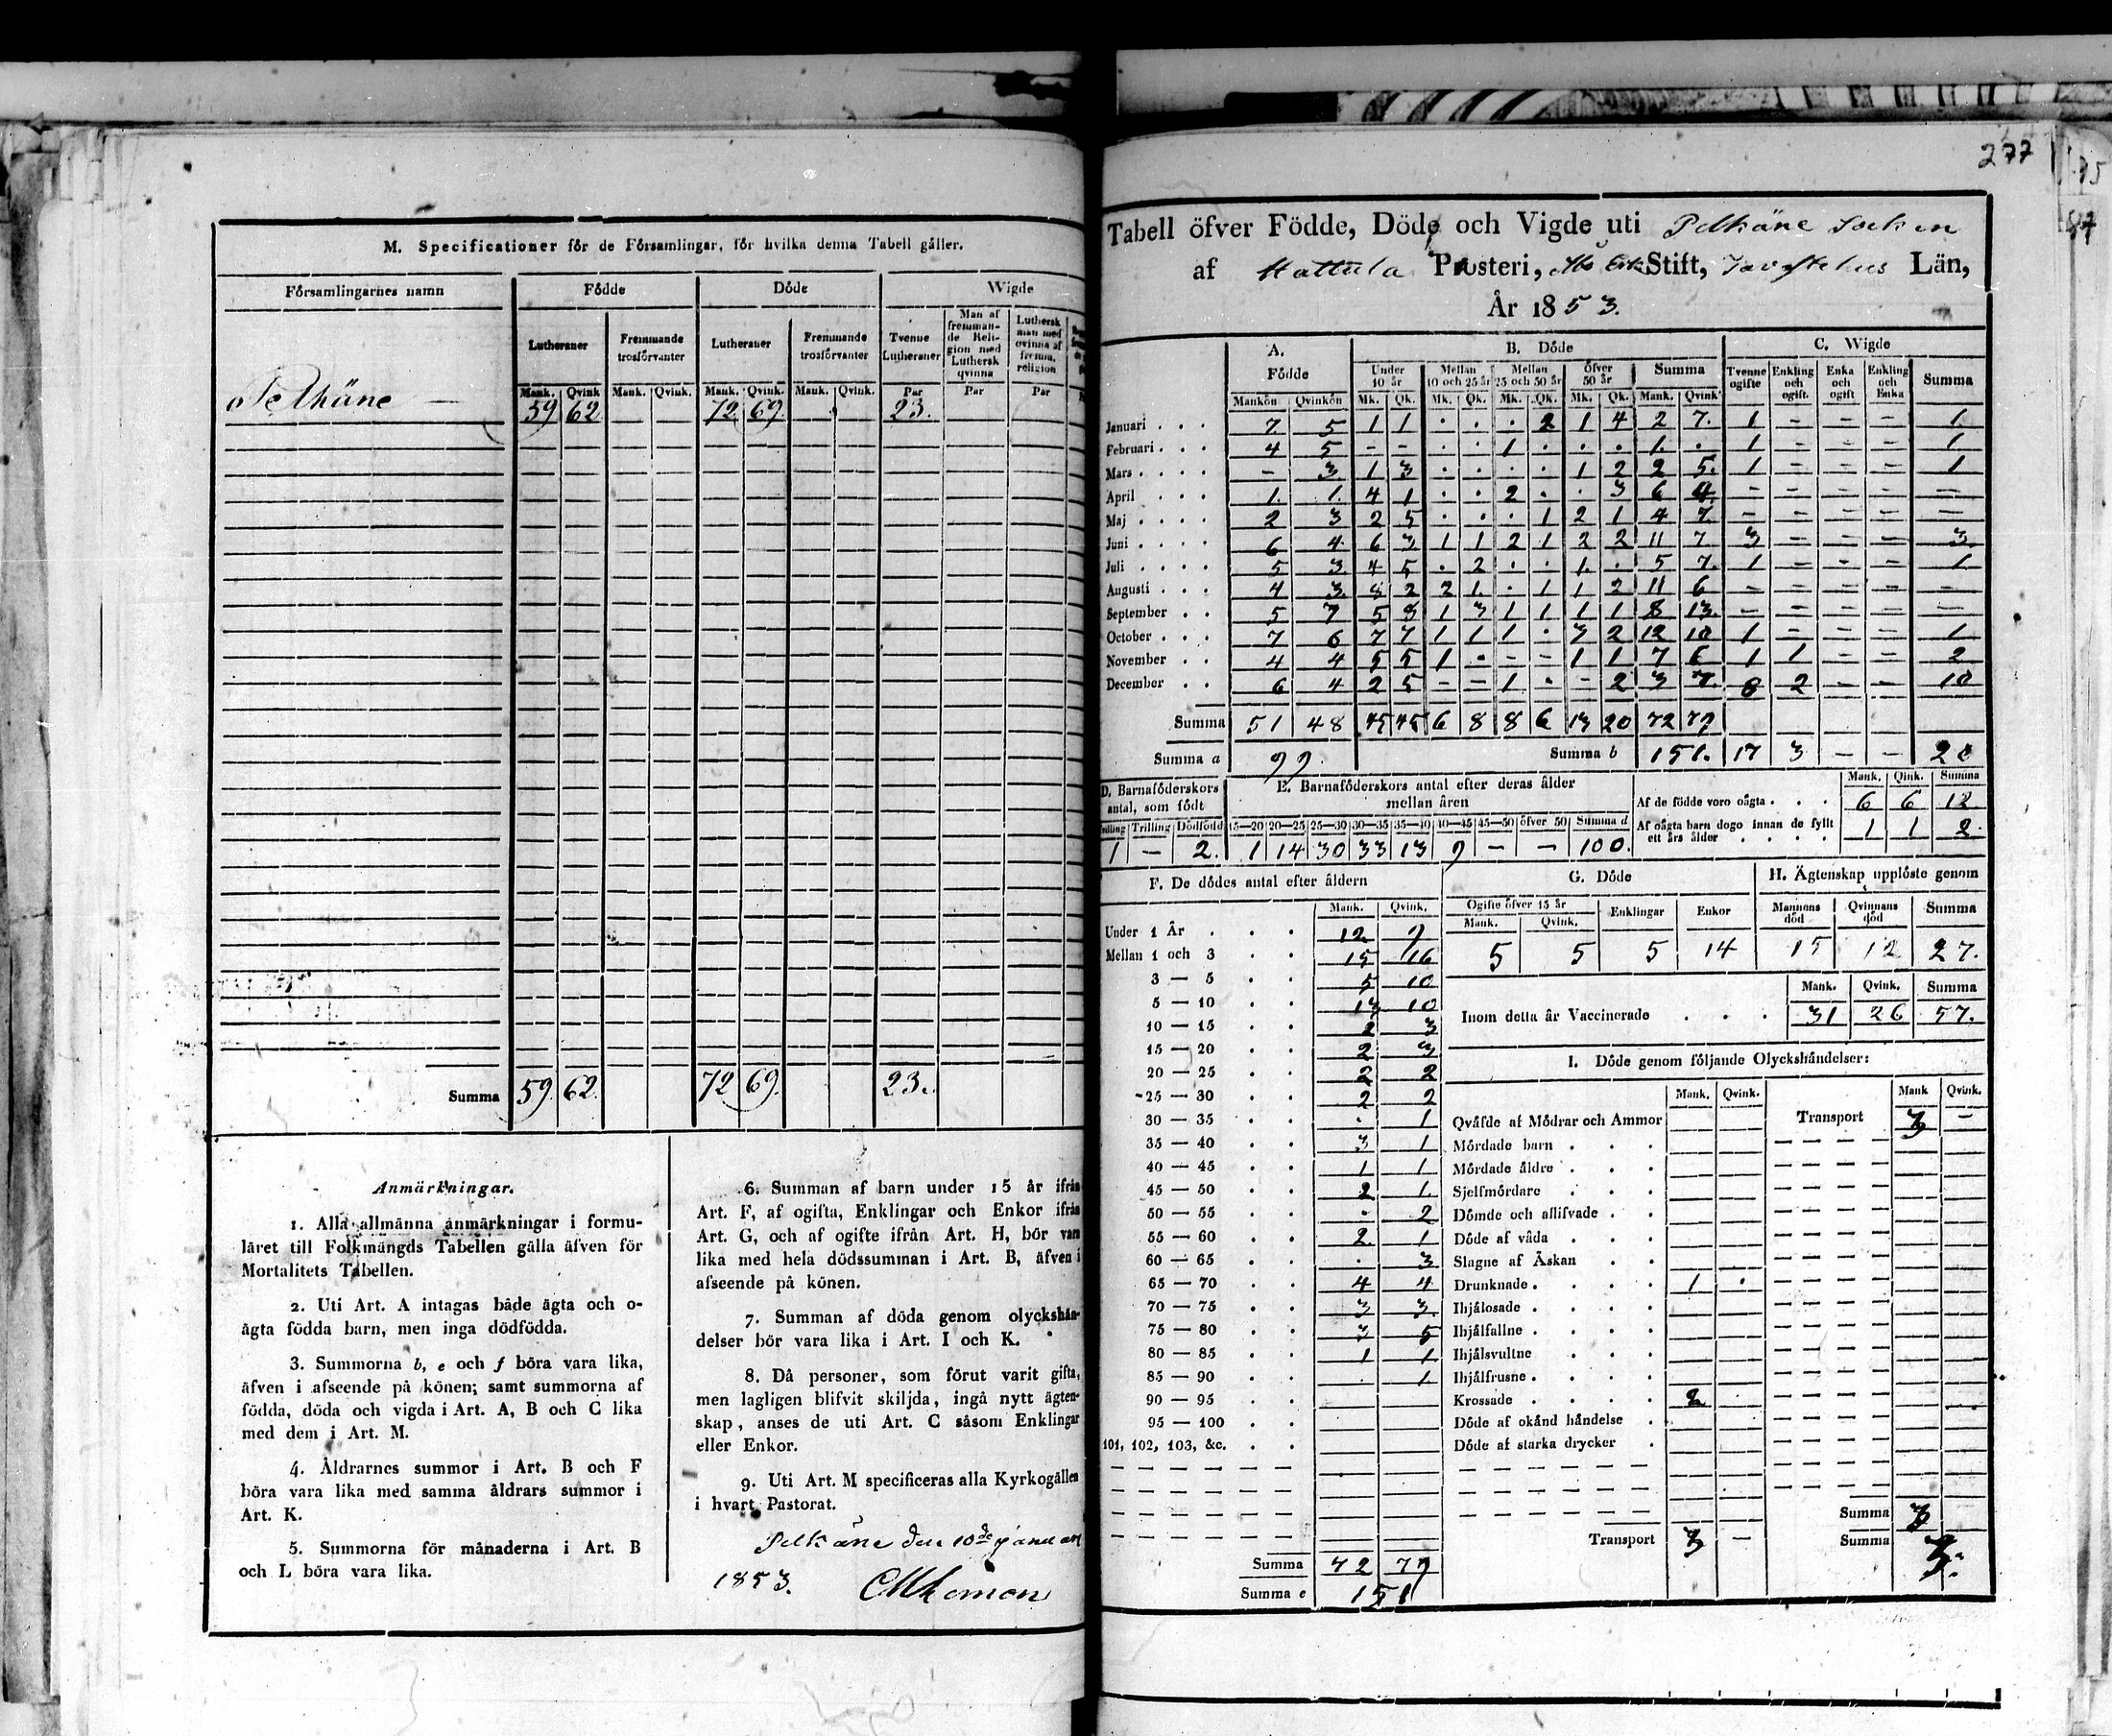 M. Specificationer för de Församlingar, för hvilka denna Tabell gäller.
Församlingarnes namn Födde Döde Wigde
Lutheraner Fremmande trosförvanter Lutheraner Fremmande trosförvanter Tvenne Lutheraner Man af fremmande Religion med Luthersk qvinna Luthersk man med qvinna af fremm. religion
Mank. Qvink Mank. Qvink. Mank. Qvink. Mank. Qvink. Par Par Par
Pelkäne 59 62 72 69. 23.
Summa 59. 62. 72 69. 23.
Anmärkningar.
1. Alla allmänna anmärkningar i formu-
läret till Folkmängds Tabellen gälla äfven för
Mortalitets Tabellen.
2. Uti Art. A intagas både ägta och o-
ägta födda barn, men inga dödfödda.
3. Summorna b, e och f böra vara lika,
äfven i afseende på könen; samt summorna af
födda, döda och vigda i Art. A, B och C lika
med dem i Art. M.
4. Åldrarnes summor i Art. B och F
böra vara lika med samma åldrars summor i
Art. K.
5. Summorna för månaderna i Art. B
och L böra vara lika.
6. Summan af barn under 15 år ifrån
Art. F, af ogifta, Enklingar och Enkor ifrån
Art. G, och af ogifte ifrån Art. H, bör vara
lika med hela dödssumman i Art. B, äfven i
afseende på könen.
7. Summan af döda genom olyckshän-
delser bör vara lika i Art. I och K.
8. Då personer, som förut varit gifta,
men lagligen blifvit skiljda, ingå nytt ägten-
skap, anses de uti Art. C såsom Enklingar
eller Enkor.
9. Uti Art. M specificeras alla Kyrkogällen
i hvart Pastorat.
Pelkäne den 10de januari
1853.
277
Tabell öfver Födde, Döde och Vigde uti Pelkäne Socken
af Hattula Prosteri, Åbo Erke Stift, Tavastehus Län,
År 1853.
A. Födde B. Döde C. Wigde
Under 10 år Mellan 10 och 25 år Mellan 25 och 50 år Öfver 50 år Summa Tvenne ogifte Enkling och ogift. Enka och ogift Enkling och Enka Summa
Mankön Qvinkön Mk. Qk. Mk. Qk. Mk. Qk. Mk. Qk. Mank. Qvink
Januari . . . 7 5 1 1 . . . 2 1 4 2 7. 1 - - - 1.
Februari . . . 4 5 - - . . 1 . . . 1. . 1 - - - 1
Mars . . . . - 3. 1 3 . . . . 1 2 2 5. 1 - - - 1
April . . . 1. 1. 4 1 . . 2 . . 3 6 4. - - - - -
Maj . . . . 2 3 2 5 . . . 1 2 1 4 7. - - - - -
Juni . . . . 6 4. 6 3 1 1 2 1 2 2 11 7 3 - - - 3.
Juli . . . . 5 3. 4 5 . 2 . . 1. . 5 7. 1 - - - 1
Augusti . . . 4 3. 8 2 2 1. . 1 1 2 11 6 - - - - -
September . . 5 7 5 8 1 3 1 1 1 1 8 13. - - - - -
October . . . 7 6 7 7 1 1 1 . 3 2 12 10 1 - - - 1
November . . 4 4 5 5 1 . - - 1 1 7 6 1 1 - - 2
December . . 6 4 2 5 - - 1 . - 2 3 7. 8 2 - - 10
Summa 51 48 45 45 6 8 8 6 13 20 72 79
Summa a 99. Summa b 151. 17 3 - - 20
D. Barnaföderskors antal, som födt
E. Barnaföderskors antal efter deras ålder mellan åren
Mank. Qink. Summa
Tvilling Trilling Dödfödd 15—20 20—25 25—30 30—35 35—40 40—45 45—50 öfver 50 Summa d
1 - 2. 1 14 30 33 13 9 - - 100.
Af de födde voro oägta . . . 6 6 12
Af oägta barn dogo innan de fyllt ett års ålder . . . . 1 1 2.
F. De dödes antal efter åldern
Mank. Qvink.
Under 1 År . . . 12. 9
Mellan 1 och 3 . . 15 16
3 — 5 . . 5 10
5 — 10 . . 13 10
10 — 15 . . 2 3
15 — 20 . . 2 3
20 — 25 . . 2 2
25 — 30 . . 2 2
30 — 35 . . . 1
35 — 40 . . 3 1
40 — 45 . . 1 1
45 — 50 . . 2 1.
50 — 55 . . . 2
55 — 60 . . 2. 1
60 — 65 . . . 3
65 — 70 . . 4 4
70 — 75 . . 3 3.
75 — 80 . . 3 5
80 — 85 . . 1 1
85 — 90 . . . 1
90 — 95 . .
95 — 100 . .
101, 102, 103, &c. . .
Summa 72 79
Summa e 151
G. Döde
Ogifte öfver 15 år Enklingar Enkor
Mank. Qvink.
5 5 5 14
H. Ägtenskap upplöste genom
Mannens död Qvinnans död Summa
15 12 27.
Mank. Qvink. Summa
Inom detta år Vaccinerade . . . 31 26 57.
I. Döde genom följande Olyckshändelser:
Mank. Qvink. Mank Qvink.
Qväfde af Mödrar och Ammor
Transport 3 -
Mördade barn . . .
Mördade äldre . . .
Sjelfmördare . . .
Dömde och aflifvade . .
Döde af våda . . .
Slagne af Åskan . .
Drunknade . . . . 1 .
Ihjälosade . . . .
Ihjälfallne . . . .
Ihjälsvultne . . .
Ihjälfrusne . . . .
Krossade . . . . 2
Döde af okänd händelse .
Döde af starka drycker .
Summa 3
Transport 3 - Summa 3.